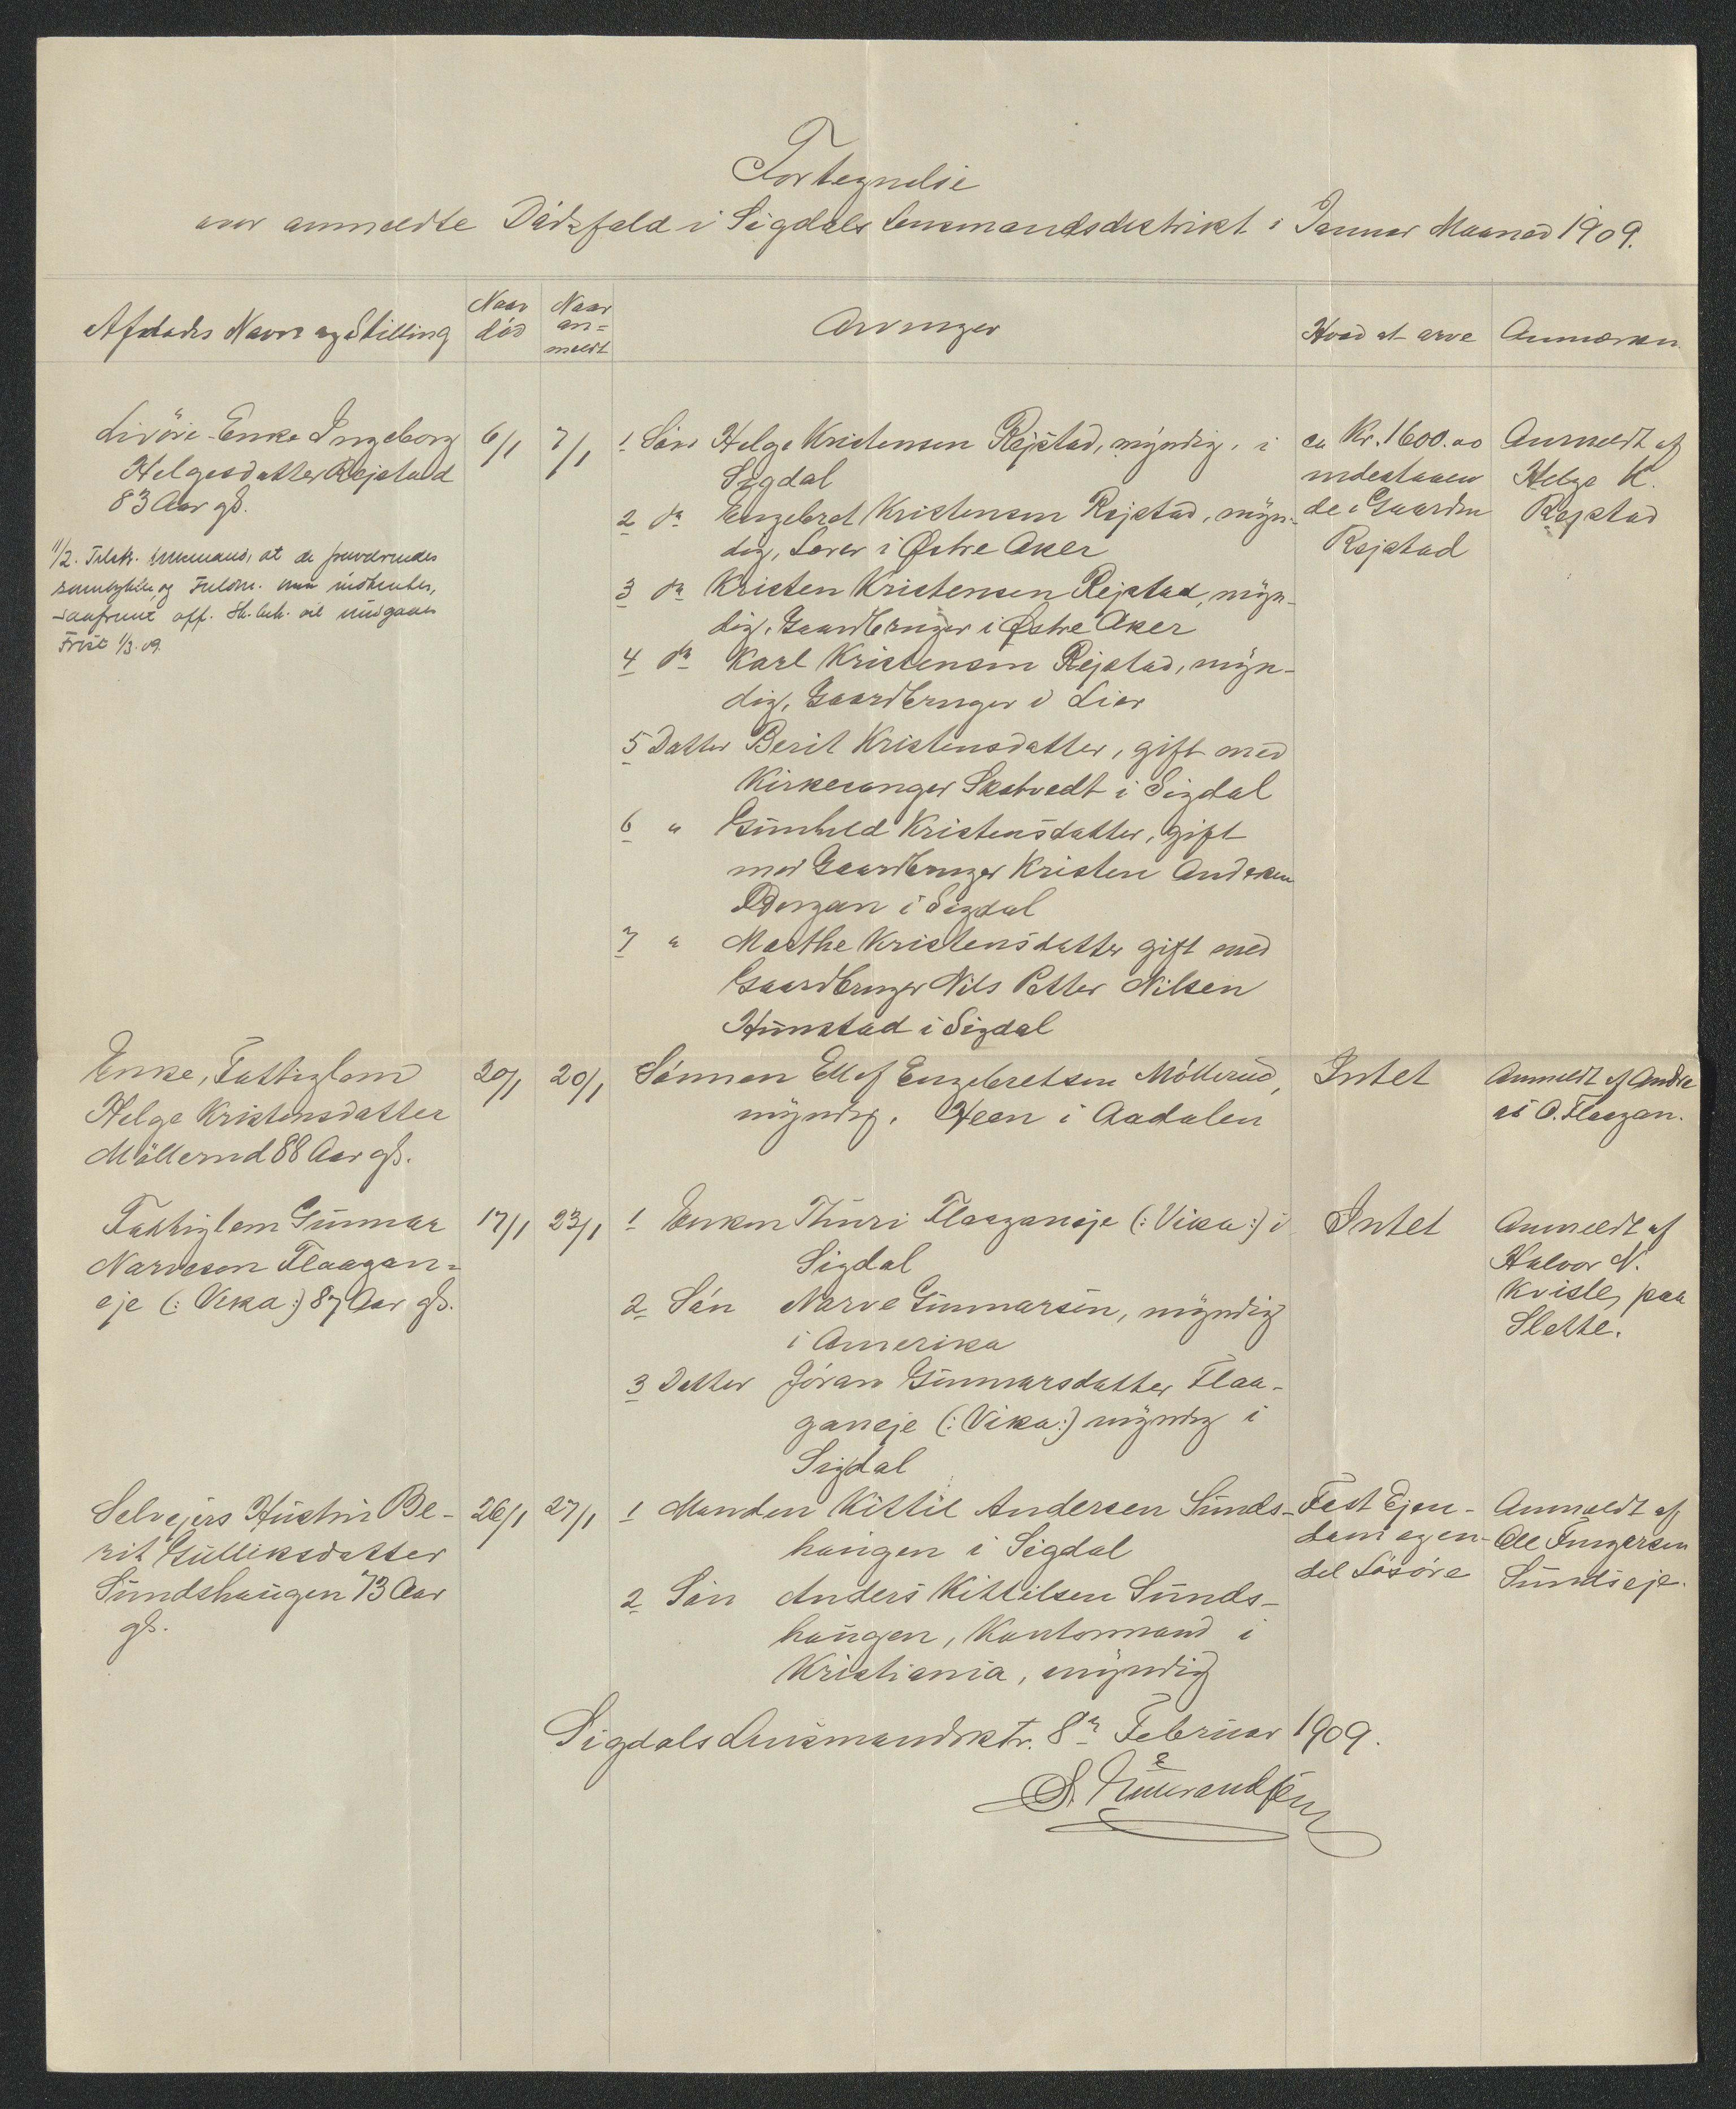 Fortegnelse
over anmeldte Dödsfald i Sigdals Lensmandsdistrikt i Januar Maaned 1909.
Afdødes Navn og Stilling
Naar död
Naar an=
meldt
Arvinger
Hvad at arve
Anmærkn.
Livöre-Enke Ingeborg
Helgesdatter Rejstad
83 Aar gl.
6/1
7/1
1 Sön Helge Kristensen Rejstad, myndig, i
Sigdal
2 do Engebret Kristensen Rejstad, myn-
dig, Lærer i Østre Aker
3 do Kristen Kristensen Rejstad, myn-
dig, Gaardbruger i Østre Aker
4 do Karl Kristensen Rejstad, myn-
dig, Gaardbruger i Lier
5 Datter Berit Kristensdatter, gift med
Kirkesanger Skatvedt i Sigdal
6 " Gunhild Kristensdatter, gift
med Gaardbruger Kristen Andersen
i Sigdal
7 " Marthe Kristensdatter gift med
Gaardbruger Nils Petter Nilsen
Hunstad i Sigdal
ca Kr. 1600.00
indestaaen
de i Gaarden
Rejstad
Anmeldt af
Helge K.
Rejstad
1/2. Lensmand, at de
samtykke og Fuldm. maa indhentes,
saafremt off. Sk.beh. vil undgaaes
Frist 1/3.09.
Enke, Fattiglem
Helge Kristensdatter
Möllerud 88 Aar gl.
20/1
20/1
Sönnen Ellef Engebretsen Möllerud,
myndig, Heen i Aadalen
Intet
Anmeldt af Andre
as O. Flaagan.
Fattiglem Gunnar
Narvesen Flaagan=
eje (: Vika :) 87 Aar gl.
17/1
23/1
1 Enken Thuri Flaaganeje (: Vika :) i
Sigdal
2 Sön Narve Gunnarsen, myndig
i Amerika
3 Datter Jöran Gunnarsdatter Flaa-
ganeje (: Vika :) myndig i
Sigdal
Intet
Anmeldt af
Halvor N.
Kvisle, paa
Slette.
Selvejers Hustru Be-
rit Gulliksdatter
Sundshaugen 73 Aar
gl.
26/1
27/1
1 Manden Kittil Andersen Sunds-
haugen i Sigdal
2 Sön Anders Kittilsen Sunds-
haugen, Kontormand i
Kristiania, myndig
Fast Ejen-
dom og en
del Lösöre
Anmeldt af
Ole Fingersen
Sundseje.
Sigdals Lensmandsktr. 8de Februar 1909.